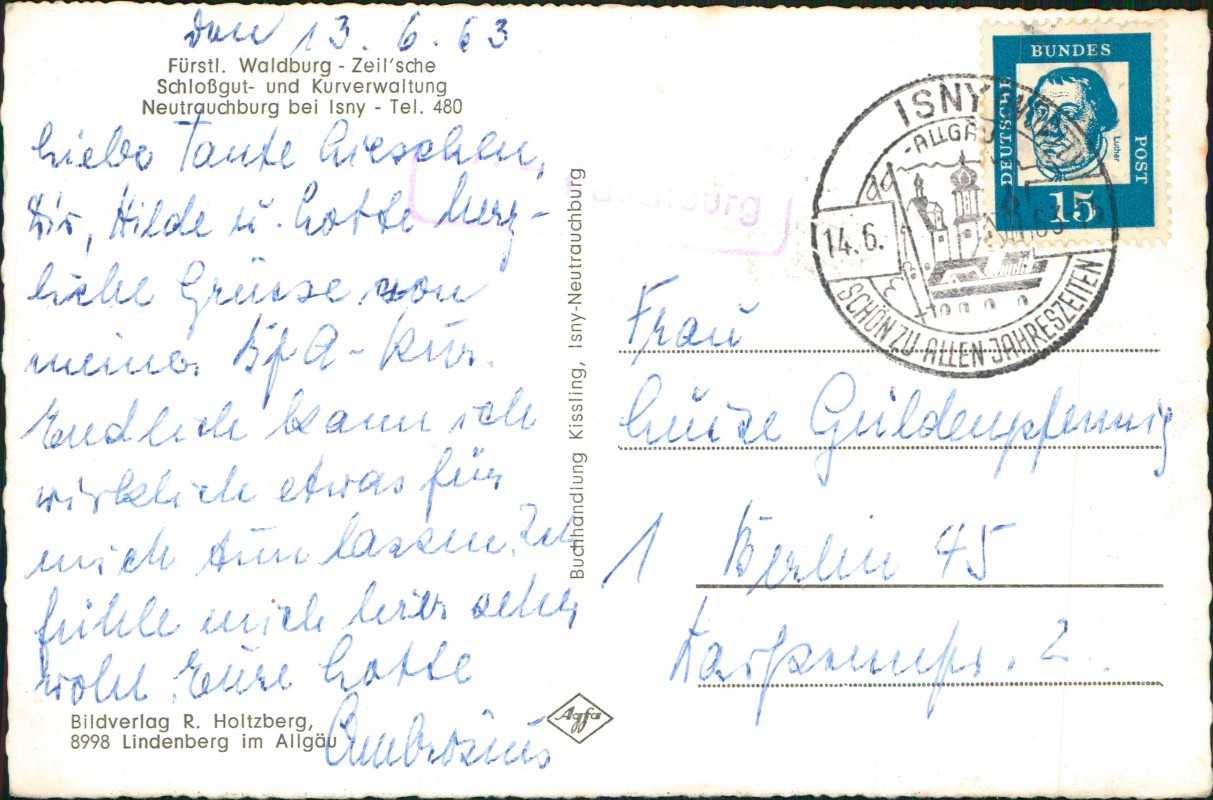 den 13.6.63
Fürstl. Waldburg - Zeil'sche
Schloßgut- und Kurverwaltung
Neutrauchburg bei Isny - Tel. 480
Liebe Tante Lieschen,
Dir, Hilde u. Lotte herz-
liche Grüsse von
meiner BfA-Kur.
Endlich kann ich
wirklich etwas für
mich tun lassen. Ich
fühle mich hier sehr
wohl. Eure Lotte
Ambrosius
Bildverlag R. Holtzberg,
8998 Lindenberg im Allgäu
Agfa
Buchhandlung Kissling, Isny-Neutrauchburg
ISNY
-ALLGÄU
14.6.
SCHÖN ZU ALLEN JAHRESZEITEN
DEUTSCHE
BUNDES
POST
Luther
15
Frau
Luise Güldenpfennig
1 Berlin 45